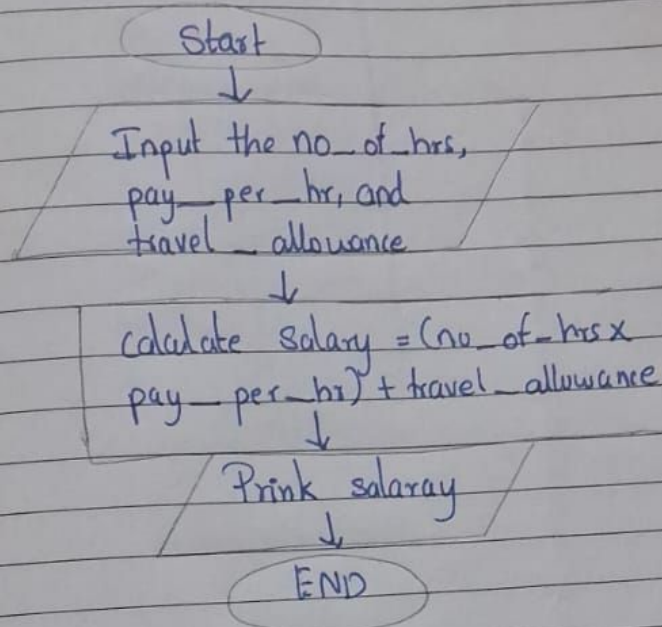 Start
Input the no_of_hrs,
pay_per_hr, and
travel_allowance
calculate salary = (no_of_hrs x
pay_per_hr) + travel_allowance
Prink salaray
END